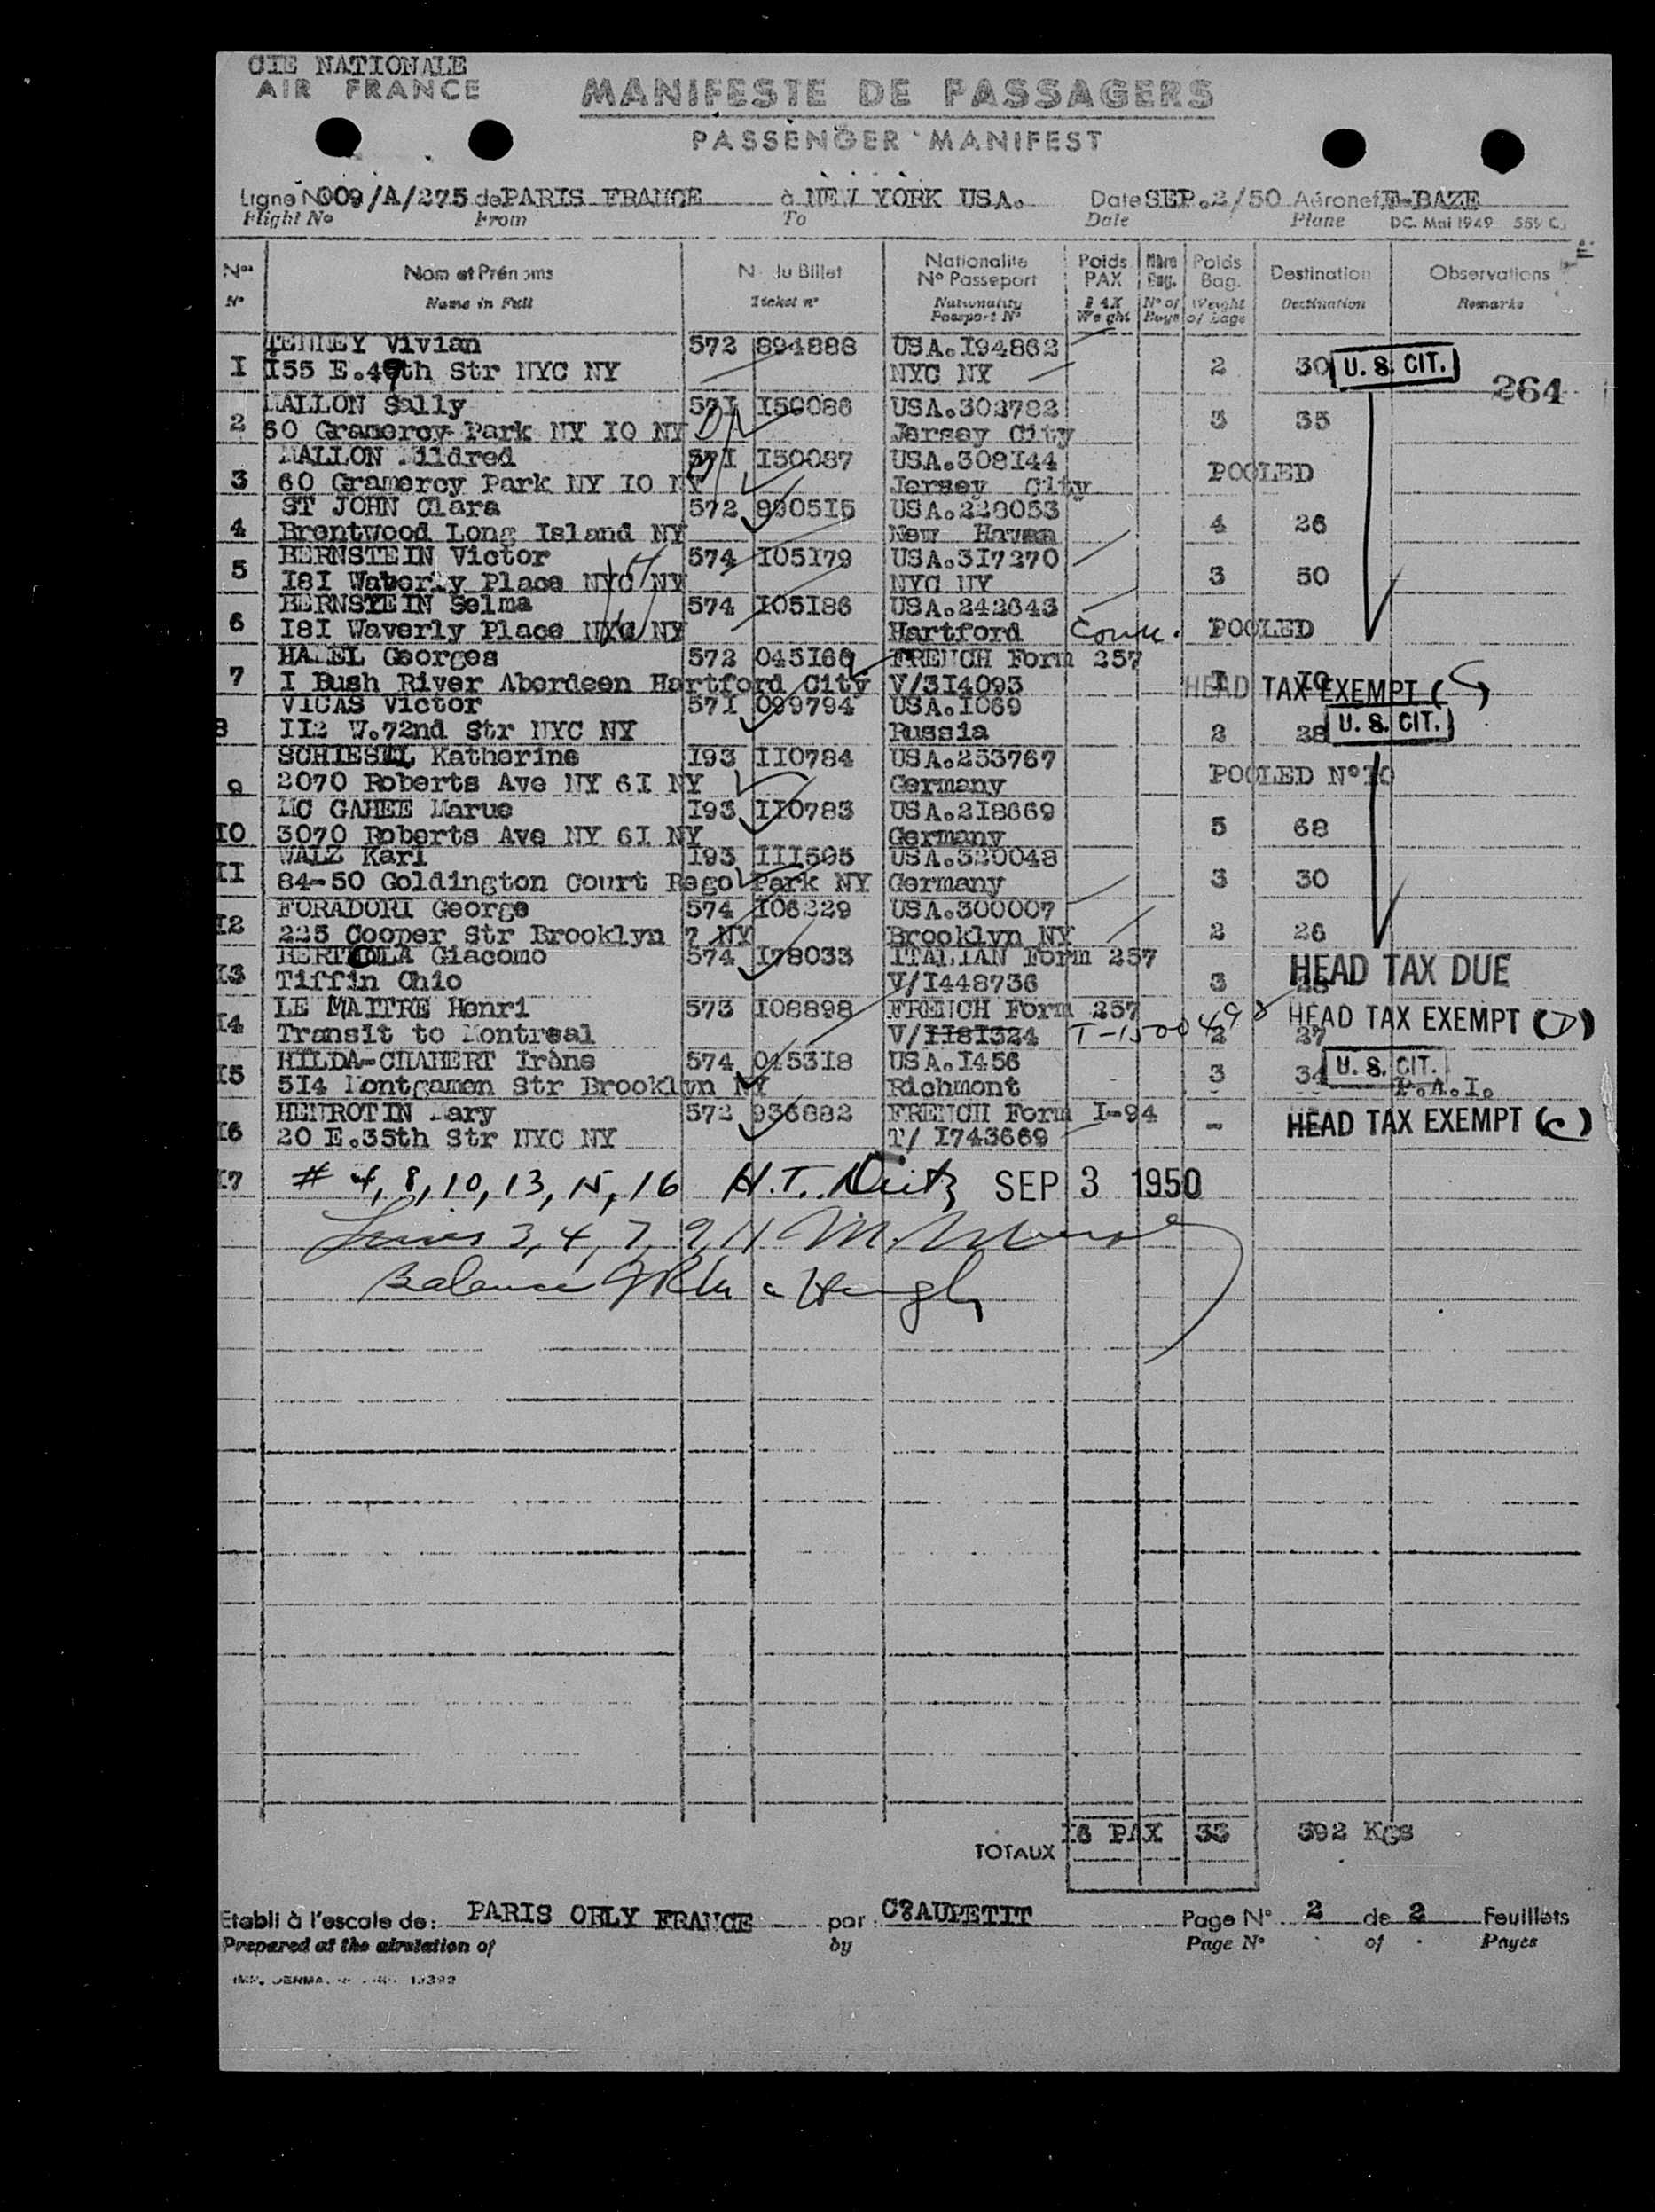 CIE NATIONALE
AIR FRANCE
MANIFESTE DE PASSAGERS
PASSENGER MANIFEST
Ligne N° 009/A/275 de PARIS FRANCE à NEW YORK USA. Date SEP.2/50 Aéronef F-BAZE
Flight No From To Date Plane DC. Mai 1949 559 C.
Nos Nom et Prénoms N° du Billet Nationalité N° Passeport Poids PAX Nbre Bag. Poids Bag. Destination Observations
N° Name in Full Ticket n° Nationality Passport N° PAX Weight N° of Bags Weight of Bags Destination Remarks
TENNEY Vivian 572 894886 USA.I94862
I I55 E.49th Str NYC NY NYC NY 2 30 U. S. CIT.
264
MALLON Sally 57I I50086 USA.302782
2 60 Gramercy Park NY IO NY Jersey City 3 35
MALLON Mildred 57I I50087 USA.308I44
3 60 Gramercy Park NY IO NY Jersey City POOLED
ST JOHN Clara 572 8905I5 USA.228053
4 Brentwood Long Island NY New Haven 4 26
BERNSTEIN Victor 574 I05I79 USA.3I7270
5 I8I Waverly Place NYC NY NYC NY 3 50
BERNSTEIN Selma 574 I05I86 USA.242643
6 I8I Waverly Place NYC NY Hartford Conn. POOLED
HAMEL Georges 572 045I66 FRENCH Form 257
7 I Bush River Aberdeen Hartford City V/3I4093 I IO HEAD TAX EXEMPT (
VICAS Victor 57I 099794 USA.I069
8 II2 W.72nd Str NYC NY Russia 2 28 U. S. CIT.
SCHIESEL Katherine I93 II0784 USA.253767
9 2070 Roberts Ave NY 6I NY Germany POOLED N°IO
MC GAHEE Marue I93 II0783 USA.2I8669
IO 3070 Roberts Ave NY 6I NY Germany 5 68
WALZ Karl I93 III505 USA.320048
II 84-50 Goldington Court Rego Park NY Germany 3 30
FORADORI George 574 I06229 USA.300007
I2 225 Cooper Str Brooklyn 7 NY Brooklyn NY 2 26
BERTOLA Giacomo 574 I78033 ITALIAN Form 257
I3 Tiffin Ohio V/I448736 3 HEAD TAX DUE
LE MAITRE Henri 573 I08898 FRENCH Form 257
I4 Transit to Montreal V/II8I324 T-1500498 2 27 HEAD TAX EXEMPT (D)
HILDA-CHAMERT Irène 574 0453I8 USA.I456
I5 5I4 Montgamen Str Brooklyn NY Richmont 3 34 U. S. CIT. P.A.I.
HENROTIN Mary 572 936882 FRENCH Form I-94
I6 20 E.35th Str NYC NY T/ I743669 - HEAD TAX EXEMPT (C)
I7 # 4, 8, 10, 13, 15, 16 H.T. Deitz SEP 3 1950
Lines 3, 4, 7, 9, 11
Balance
TOTAUX I6 PAX 33 392 KGS
Etabli à l'escale de: PARIS ORLY FRANCE par: C?AUPETIT Page N° 2 de 2 Feuillets
Prepared at the airstation of by Page N° of Pages